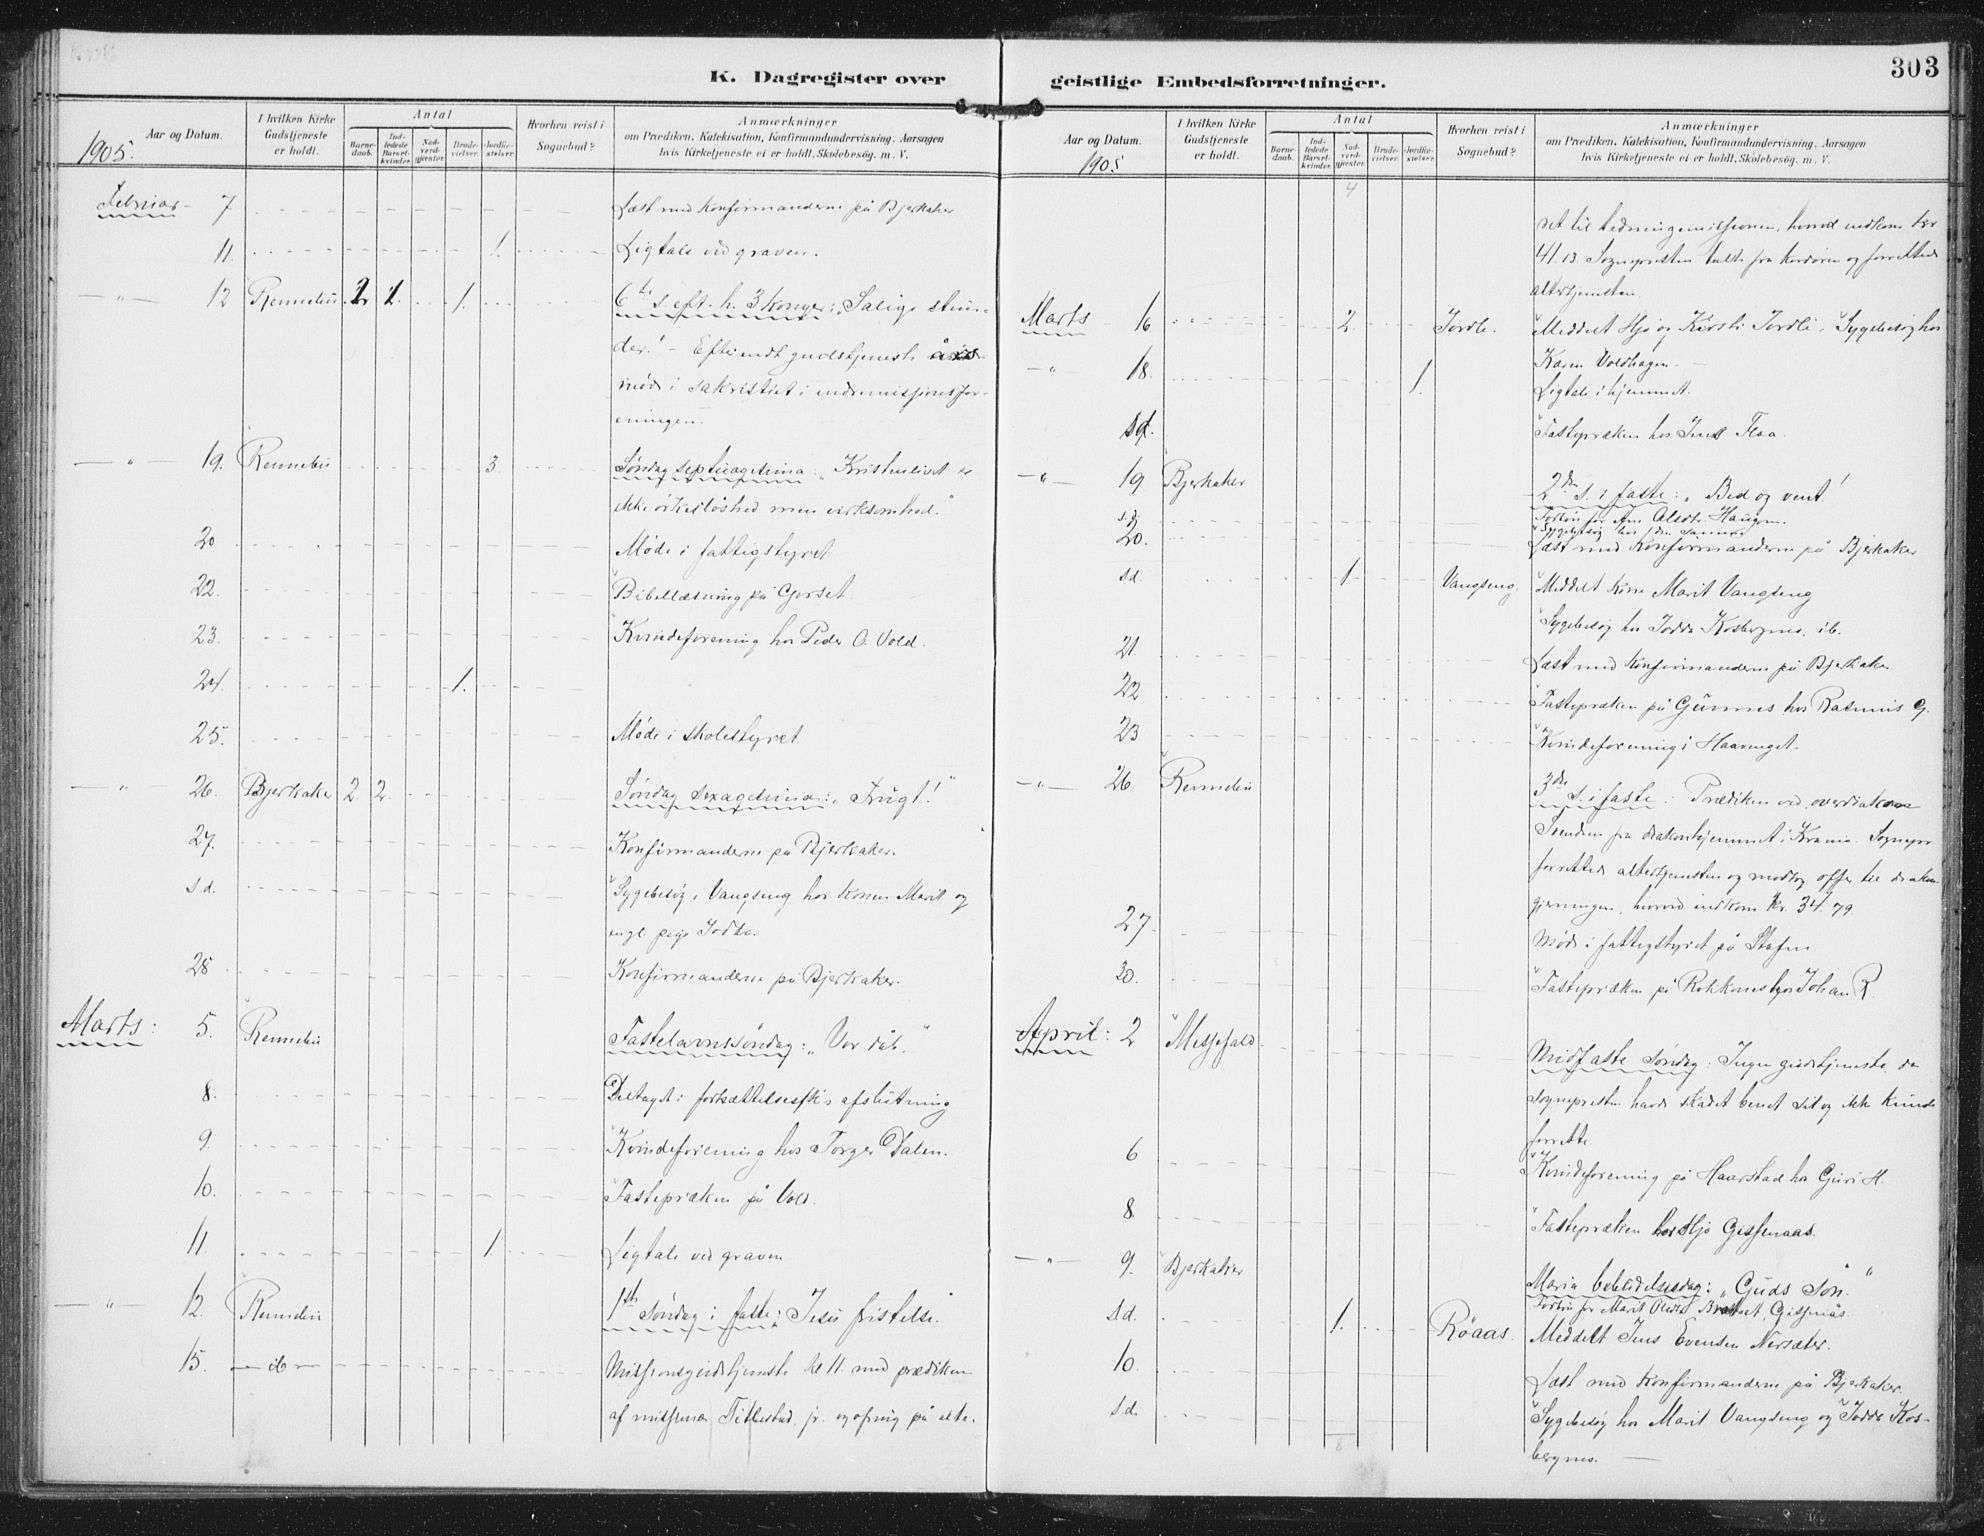 303
K. Dagregister over geistlige Embedsforretninger.
Aar og Datum.
I hvilken Kirke Gudstjeneste er holdt.
Antal
Barne-daab.
Ind-ledede Barsel-kvinder.
Nad-verd-gjester.
Brude-vielser.
Jordfæ-stelser.
Hvorhen reist i Sognebud?
Anmærkninger
om Prædiken, Katekisation, Konfirmandundervisning, Aarsagen
hvis Kirketjeneste ei er holdt, Skolebesøg. m. V.
1905.
Februar 7 Læst med konfirmanderne på Bjerkaker
11. 1. Ligtale ved graven.
" 12 Rennebu 1. 6te s. eft. h. 3 konger: "Salige stun-
der!" - Efter endt gudstjeneste
møde i sakristiet i indremissjonsfor-
eningen.
" 19. Rennebu 3. Søndag septuagesima: "Kristenlivet er
ikke ørkesløshed men virksomhed."
20 Møde i fattigstyret
22. Bibellæsning på Gorset
23. Kvindeforening hos Peder O. Vold.
24. 1.
25. Møde i skolestyret
" 26. Bjerkaker 2 2. Søndag sexagesima: "Frugt!"
27. Konfirmanderne på Bjerkaker.
s.d. Sygebesøg i Vangseng hos konen Marit og
pige Jodda.
28 Konfirmanderne på Bjerkaker.
Marts: 5. Rennebu Fastelavnssøndag: "Vor dåb."
8. Deltaget i fortsættelsessk's afslutning
9. Kvindeforening hos Torger Dalen.
10. Fastepræken på Vold.
11. 1. Ligtale ved graven
" 12. Rennebu 1ste søndag i faste: "Jesu fristelse."
15. - ib - Missionsgudstjeneste kl 11. med prædiken
af missionær Titlestad jr. og ofring på alte-
Aar og Datum.
I hvilken Kirke Gudstjeneste er holdt.
Antal
Barne-daab.
Ind-ledede Barsel-kvinder.
Nad-verd-gjester.
Brude-vielser.
Jordfæ-stelser.
Hvorhen reist i Sognebud?
Anmærkninger
om Prædiken, Katekisation, Konfirmandundervisning, Aarsagen
hvis Kirketjeneste ei er holdt, Skolebesøg. m. V.
1905
4
ret til hedningemissionen, hvorved indkom kr
41.13. Sognepresten talte fra kordøren og forrettede
altertjenesten
Marts 16 2. Jordli. Meddelt Sjo og Kirsti Jordli. Sygebesøg hos
Karen Voldhagen.
" 18. 1. Ligtale i hjemmet.
s.d. Fastepræken hos Jens Flaa.
" 19 Bjerkaker 2den s. i faste: "Bed og vent!"
s.d. Forbøn for Ane Olsdtr. Haugen.
Sygebesøg hos den samme
20. Læst med konfirmanderne på Bjerkaker
s.d. 1 Vangseng. Meddelt kone Marit Vangseng
Sygebesøg hos Jodda Kosbergmo. ib.
21. Læst med konfirmanderne på Bjerkaker
22 Fastepræken på Gunnes hos Rasmus G.
23 Kvindeforening i Haavenget.
" 26 Rennebu 3die s. i faste: Prædiken ved overdiakon
Svendsen fra diakonhjemmet i Krania. Sognepr.
forrettede altertjenesten og modtog offer til diakon-
gjerningen, hvorved indkom kr. 34.79.
27. Møde i fattigstyret på Stafne
30. Fastepræken på Rokkones hos Johan R.
April: 2 Messefald. Midfaste søndag: Ingen gudstjeneste da
sognepresten havde skadet benet sit og ikke kunde
forrette
6 Kvindeforening på Haarstad hos Guri H.
8 Fastepræken hos Sjo Gissenaas.
" 9. Bjerkaker Maria bebudelsesdag: "Guds Søn."
Forbøn for Marit Olsdtr Gissnås
s.d. 1. Röaas. Meddelt Jens Evensen Nersæter.
10. Læst med konfirmanderne på Bjerkaker.
s.d. Sygebesøg hos Marit Vangseng og Jodda Kos-
bergmo.
8